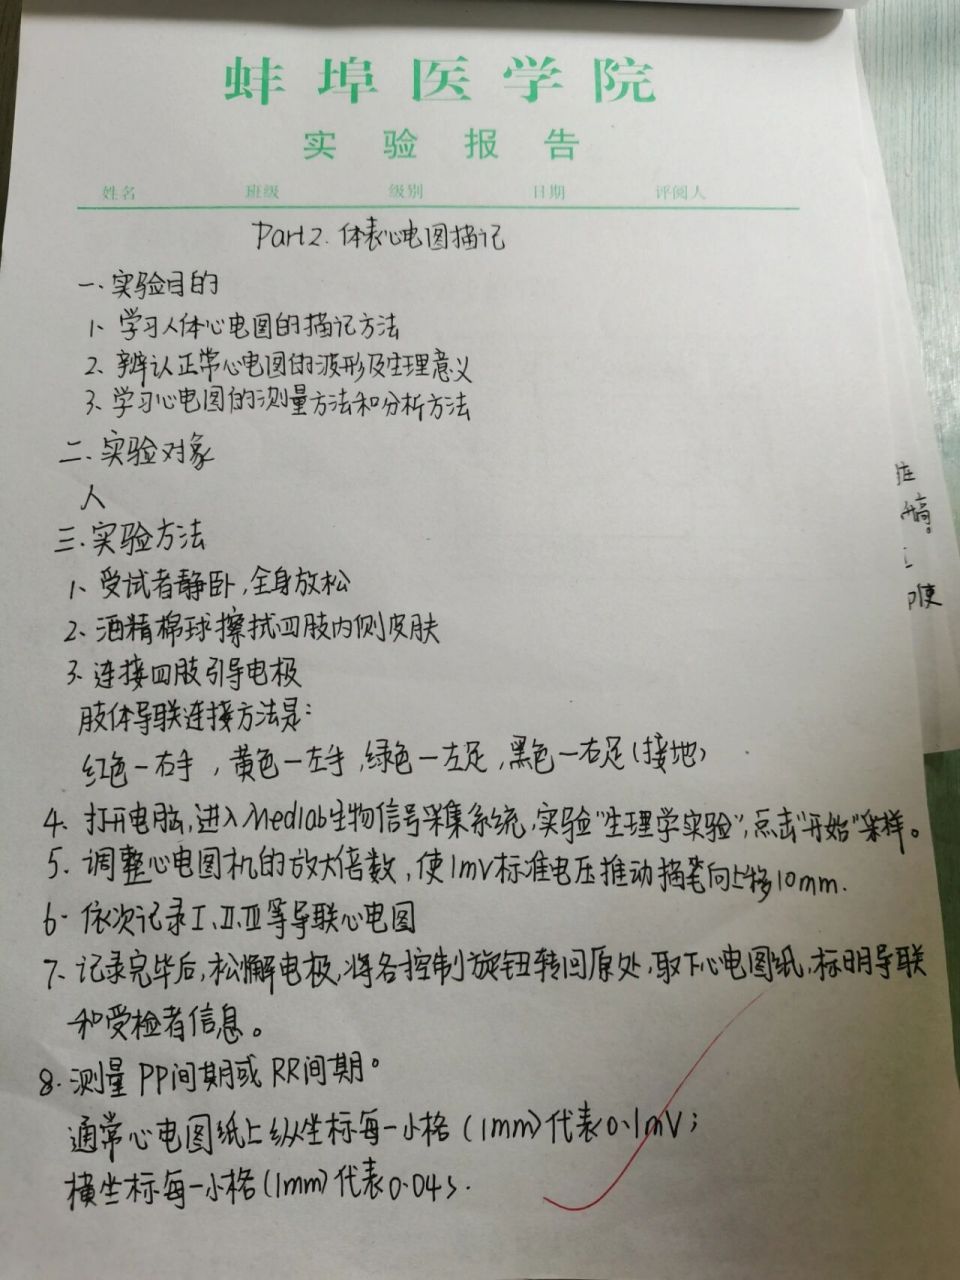 蚌埠医学院
实验报告
姓名 班级 级别 日期 评阅人
Part2. 体表心电图描记
一、实验目的
1、学习人体心电图的描记方法
2、辨认正常心电图的波形及生理意义
3、学习心电图的测量方法和分析方法
二、实验对象
人
三、实验方法
1、受试者静卧,全身放松
2、酒精棉球擦拭四肢内侧皮肤
3、连接四肢引导电极
肢体导联连接方法是:
红色—右手,黄色—左手,绿色—左足,黑色—右足(接地)
4、打开电脑,进入Medlab生物信号采集系统,实验"生理学实验",点击"开始"采样。
5、调整心电图机的放大倍数,使1mV标准电压推动描笔向上移10mm.
6、依次记录Ⅰ、Ⅱ、Ⅲ等导联心电图
7、记录完毕后,松懈电极,将各控制旋钮转回原处,取下心电图纸,标明导联
和受检者信息。
8.测量PP间期或RR间期。
通常心电图纸上纵坐标每一小格(1mm)代表0.1mV;
横坐标每一小格(1mm)代表0.04s.